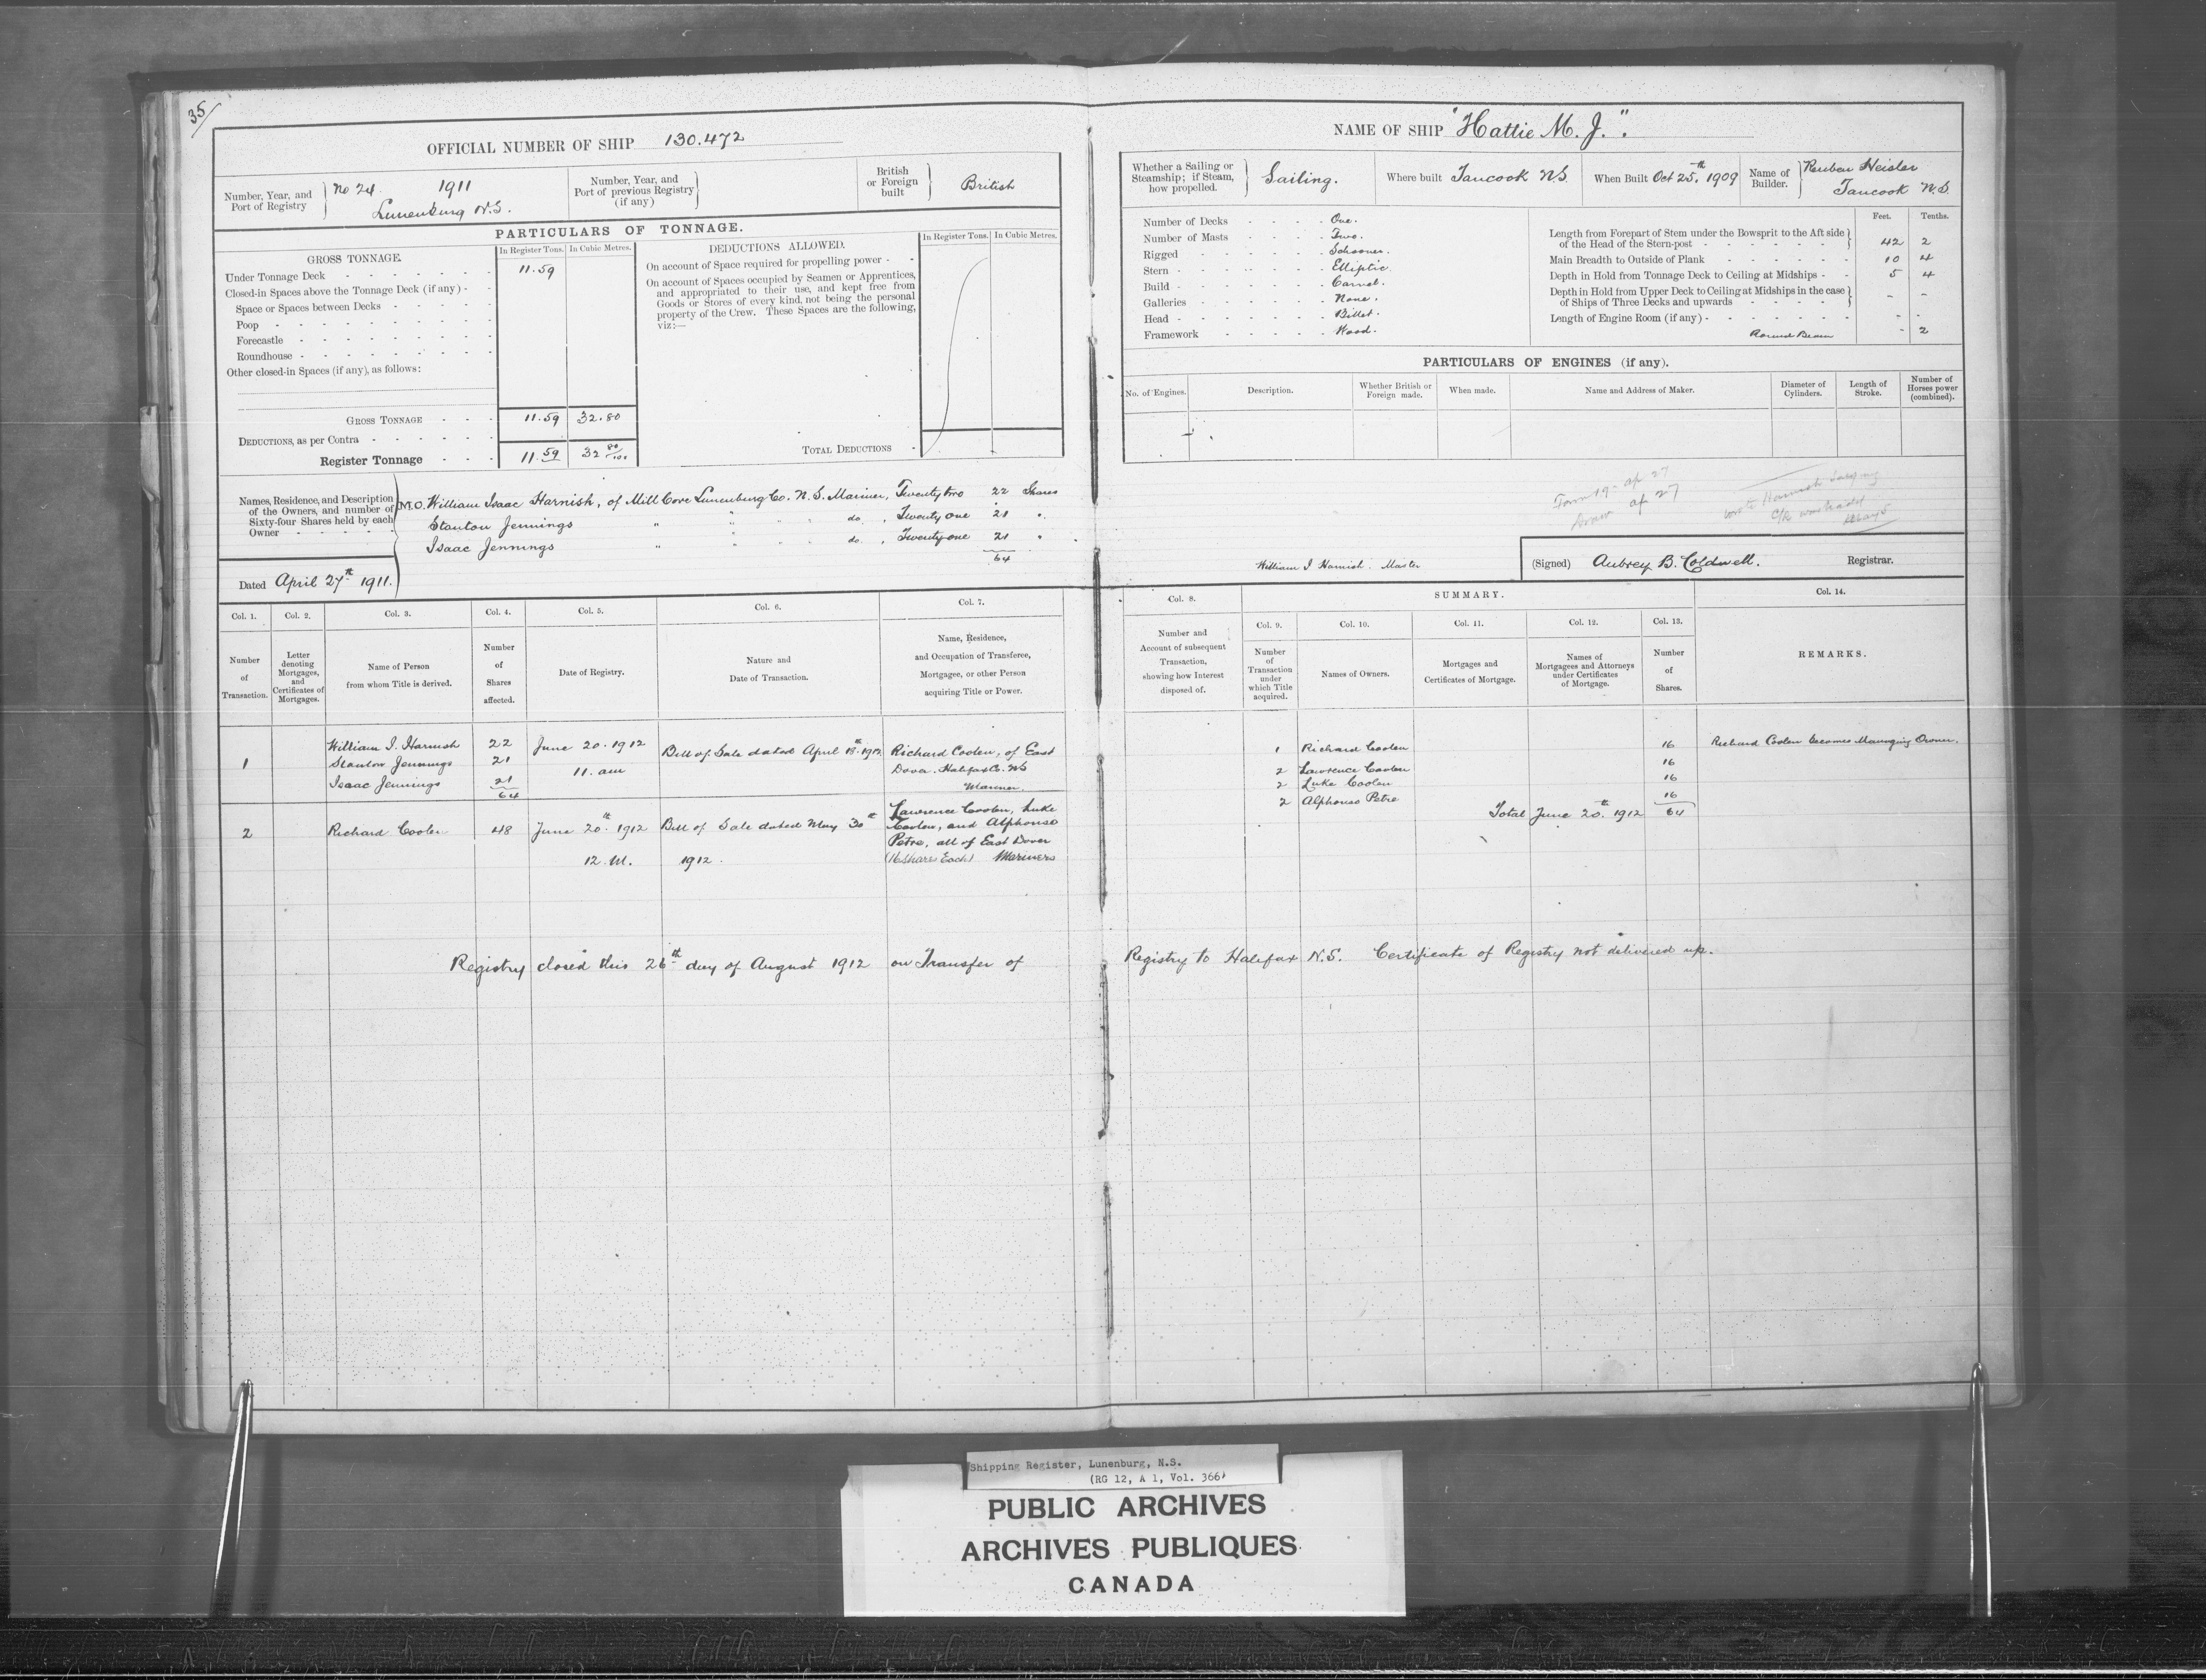 35/
OFFICIAL NUMBER OF SHIP 130.472
Number, Year, and
Port of Registry
No 24. 1911
Lunenburg N.S.
Number, Year, and
Port of previous Registry
(if any)
British
or Foreign
built
British
PARTICULARS OF TONNAGE.
GROSS TONNAGE.
In Register Tons. In Cubic Metres.
DEDUCTIONS ALLOWED.
In Register Tons. In Cubic Metres.
Under Tonnage Deck 11.59
Closed-in Spaces above the Tonnage Deck (if any)
Space or Spaces between Decks
Poop
Forecastle
Roundhouse
Other closed-in Spaces (if any), as follows:
GROSS TONNAGE 11.59 32.80
DEDUCTIONS, as per Contra
Register Tonnage 11.59 32 80/100
On account of Space required for propelling power
On account of Spaces occupied by Seamen or Apprentices,
and appropriated to their use, and kept free from
Goods or Stores of every kind, not being the personal
property of the Crew. These Spaces are the following,
viz:—
TOTAL DEDUCTIONS
Names, Residence, and Description
of the Owners, and number of
Sixty-four Shares held by each
Owner
M.O. William Isaac Harnish, of Mill Cove Lunenburg Co. N.S. Mariner, Twenty two 22 Shares
Stanton Jennings " " " " do. , Twenty one 21 "
Isaac Jennings " " " " do. , Twenty one 21 "
64
Dated April 27th 1911.
Col. 1. Col. 2. Col. 3. Col. 4. Col. 5. Col. 6. Col. 7.
Number
of
Transaction.
Letter
denoting
Mortgages,
and
Certificates of
Mortgages.
Name of Person
from whom Title is derived.
Number
of
Shares
affected.
Date of Registry.
Nature and
Date of Transaction.
Name, Residence,
and Occupation of Transferee,
Mortgagee, or other Person
acquiring Title or Power.
1
William I. Harnish 22
Stanton Jennings 21
Isaac Jennings 21
64
June 20. 1912
11. am
Bill of Sale dated April 18th 1912
Richard Coolen, of East
Dover. Halifax Co. NS
Mariner.
2
Richard Coolen 48
June 20th 1912
12. M.
Bill of Sale dated May 30th
1912.
Lawrence Coolen, Luke
Coolen, and Alphonso
Petre, all of East Dover
(16 shares Each) Mariners
Registry closed this 26th day of August 1912 on Transfer of
NAME OF SHIP "Hattie M. J.".
Whether a Sailing or
Steamship; if Steam,
how propelled.
Sailing.
Where built Tancook NS.
When Built Oct 25th 1909
Name of
Builder.
Reuben Heisler
Tancook N.S.
Number of Decks One.
Number of Masts Two.
Rigged Schooner.
Stern Elliptic
Build Carvel.
Galleries None.
Head Billet.
Framework Wood.
Feet. Tenths.
Length from Forepart of Stem under the Bowsprit to the Aft side
of the Head of the Stern-post 42 2
Main Breadth to Outside of Plank 10 4
Depth in Hold from Tonnage Deck to Ceiling at Midships 5 4
Depth in Hold from Upper Deck to Ceiling at Midships in the case
of Ships of Three Decks and upwards - -
Length of Engine Room (if any) - -
Round Beam - 2
PARTICULARS OF ENGINES (if any).
No. of Engines.
Description.
Whether British or
Foreign made.
When made.
Name and Address of Maker.
Diameter of
Cylinders.
Length of
Stroke.
Number of
Horses power
(combined).
Form 19 - ap 27
ap 27
William I Harnish. Master
(Signed) Aubrey B. Coldwell. Registrar.
Col. 8. SUMMARY. Col. 14.
Col. 9. Col. 10. Col. 11. Col. 12. Col. 13.
Number and
Account of subsequent
Transaction,
showing how Interest
disposed of.
Number
of
Transaction
under
which Title
acquired.
Names of Owners.
Mortgages and
Certificates of Mortgage.
Names of
Mortgagees and Attorneys
under Certificates
of Mortgage.
Number
of
Shares.
REMARKS.
1 Richard Coolen 16 Richard Coolen becomes Managing Owner.
2 Lawrence Coolen 16
2 Luke Coolen 16
2 Alphonso Petre 16
Total June 20th. 1912 64
Registry to Halifax N.S. Certificate of Registry not delivered up.
Shipping Register, Lunenburg, N.S.
(RG 12, A 1, Vol. 366)
PUBLIC ARCHIVES
ARCHIVES PUBLIQUES
CANADA